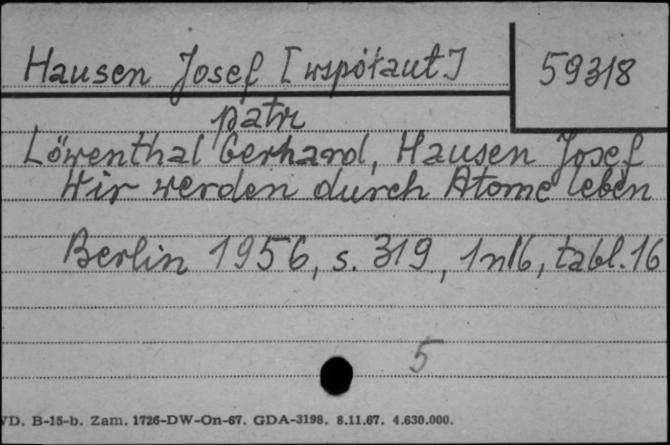 Hausen Josef [współaut]
59318
patrz
Löwenthal Gerhard, Hausen Josef
Wir werden durch Atome leben
Berlin 1956, s. 319, 1nlb, tabl. 16
5
VD. B-15-b. Zam. 1726-DW-On-67. GDA-3198. 8.11.67. 4.630.000.